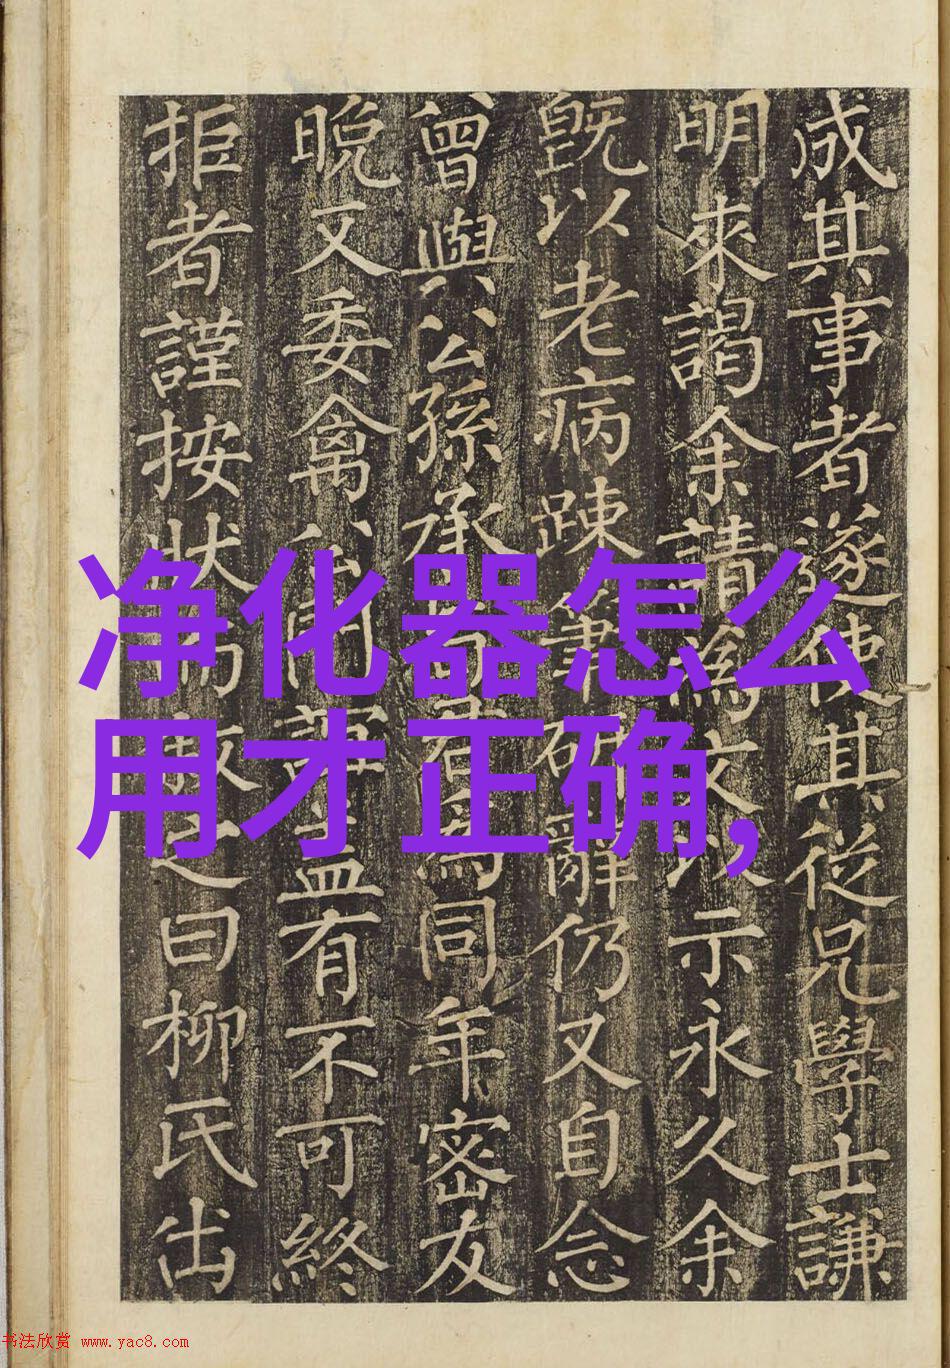 净化器怎么
用才正确,
成其事者遂使其從兄學士謙
明來謁余請為文以示永久余
既以老病踈筆研辭仍又自念
曾與公孫承旨君為同年密友
晚又委禽公門盖有不可終
拒者謹按狀而敘之曰柳氏出
书法欣赏 www.yac8.com